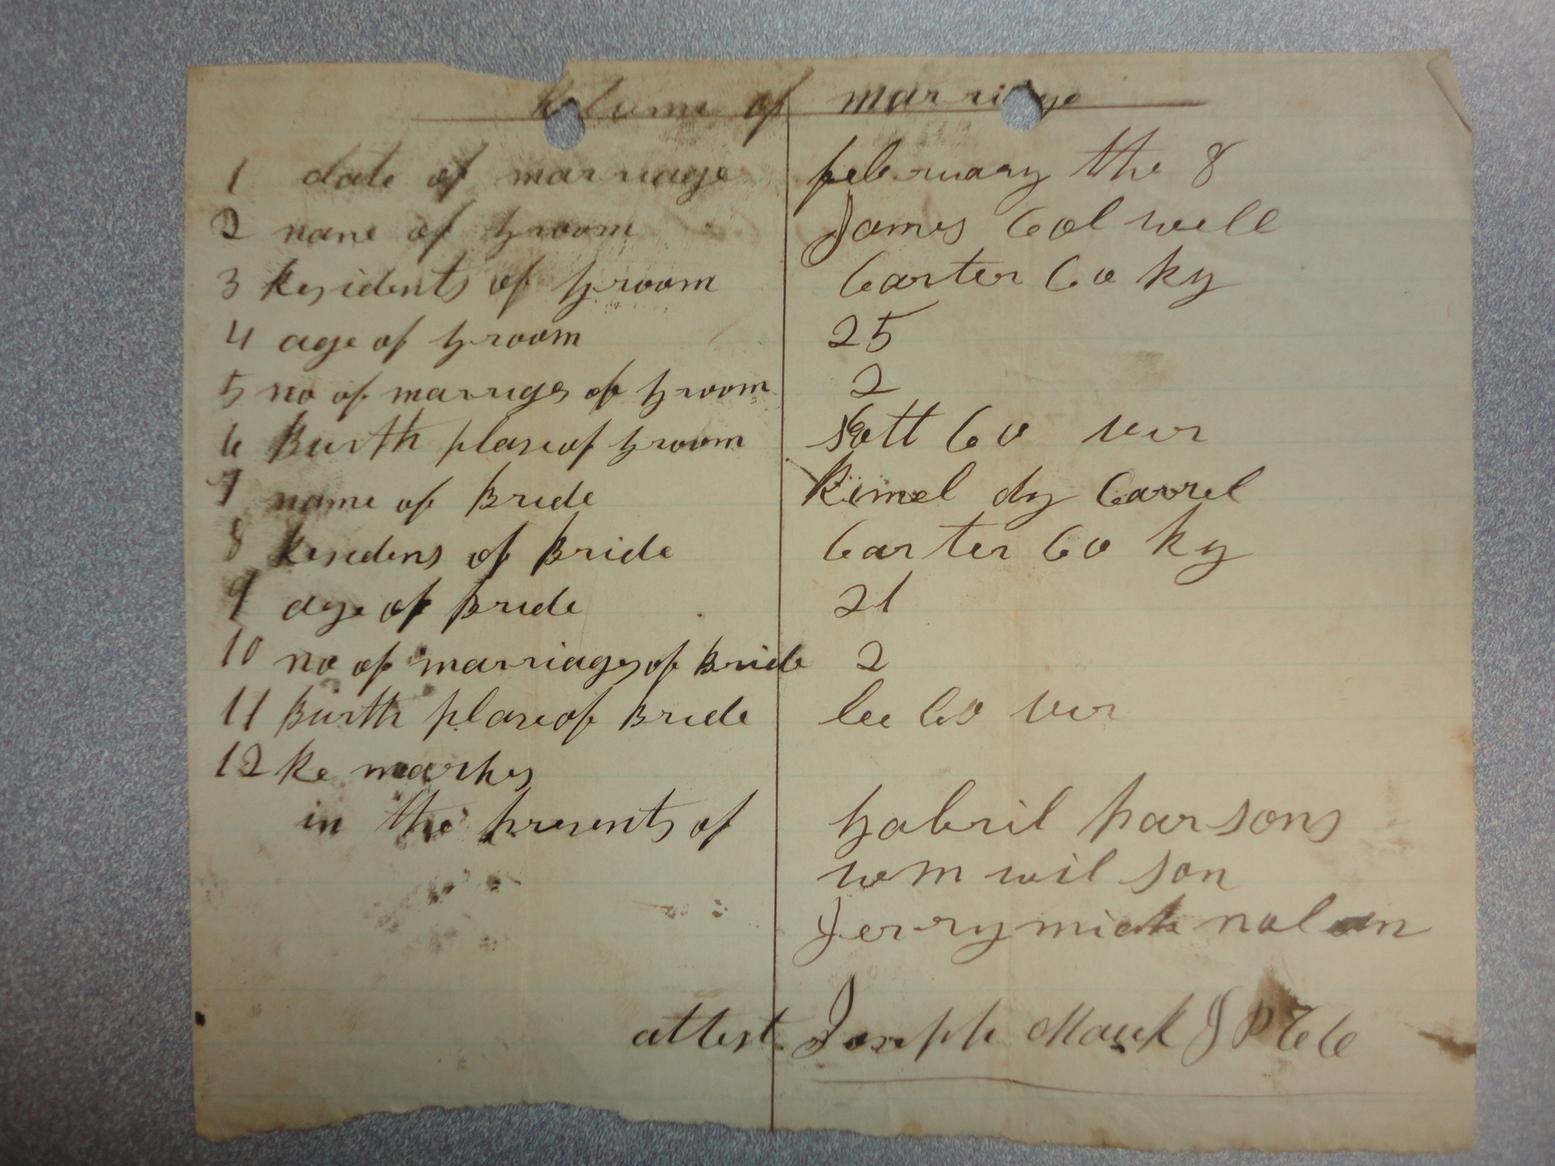 of marriage
1 date of marriage february the 8
2 name of groom James Colwell
3 Residents of groom Carter Co Ky
4 age of groom 25
5 no of marrigs of groom 2
6 Burth plase of groom Co vir
7 name of Bride Carrel
8 Residens of Bride Carter Co Ky
9 age of Bride 21
10 no of marriages of Bride 2
11 Burth plase of Bride lee Co vir
12 Re marks
in the presents of Gabril parsons
wm wilson
Jerrymiah nolen
attest Joseph Mauk J P C C